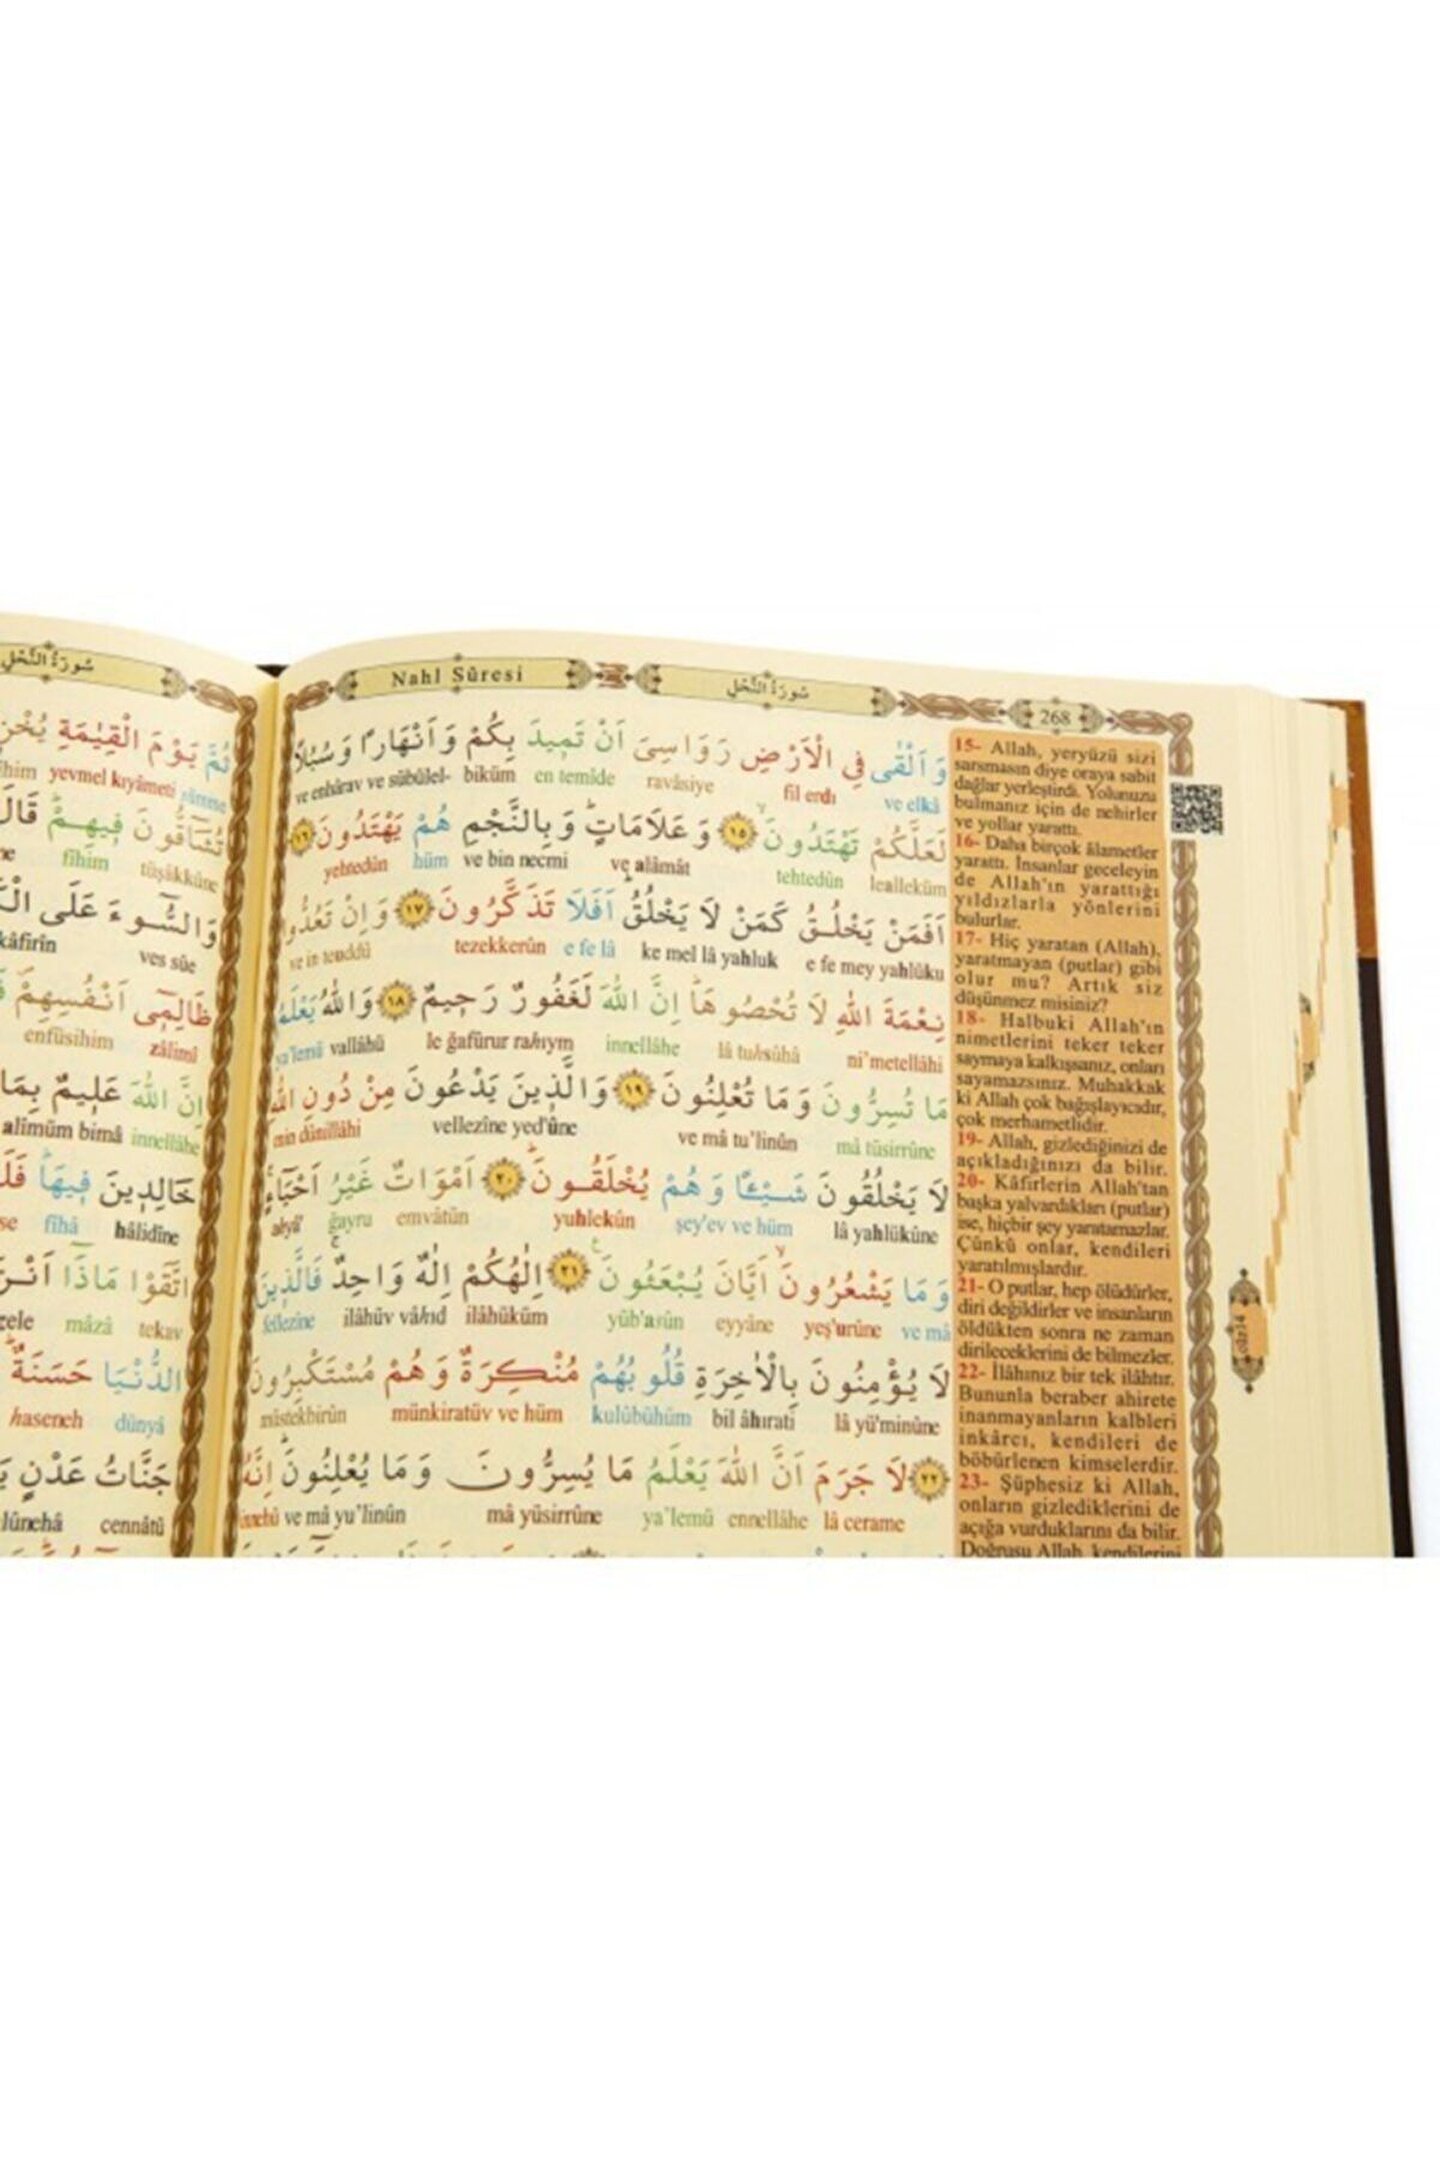 سُورَةُ النَّحْلِ
Nahl Sûresi
سُورَةُ النَّحْلِ
268
وَاَلْقٰى فِي الْاَرْضِ رَوَاسِيَ اَنْ تَم۪يدَ بِكُمْ وَاَنْهَارًا وَسُبُلًا
ve elkâ fil erdı ravâsiye en temîde biküm ve enhârav ve sübülel-
لَعَلَّكُمْ تَهْتَدُونَۙ ﴿١٥﴾ وَعَلَامَاتٍۜ وَبِالنَّجْمِ هُمْ يَهْتَدُونَ ﴿١٦﴾
lealleküm tehtedûn ve alâmât ve bin necmi hüm yehtedûn
اَفَمَنْ يَخْلُقُ كَمَنْ لَا يَخْلُقُۜ اَفَلَا تَذَكَّرُونَ ﴿١٧﴾ وَاِنْ تَعُدُّوا
e fe mey yahlüku ke mel lâ yahluk e fe lâ tezekkerûn ve in teuddû
نِعْمَةَ اللّٰهِ لَا تُحْصُوهَاۜ اِنَّ اللّٰهَ لَغَفُورٌ رَح۪يمٌ ﴿١٨﴾ وَاللّٰهُ يَعْلَمُ
ni'metellâhi lâ tuhsûhâ innellâhe le ğafûrur rahıym vallâhü ya'lemü
مَا تُسِرُّونَ وَمَا تُعْلِنُونَ ﴿١٩﴾ وَالَّذ۪ينَ يَدْعُونَ مِنْ دُونِ اللّٰهِ
mâ tüsirrûne ve mâ tu'linûn vellezîne yed'ûne min dûnillâhi
لَا يَخْلُقُونَ شَيْـًٔا وَهُمْ يُخْلَقُونَۜ ﴿٢٠﴾ اَمْوَاتٌ غَيْرُ اَحْيَٓاءٍۚ
lâ yahlükûne şey'ev ve hüm yuhlekûn emvâtün ğayru ahyâ'
وَمَا يَشْعُرُونَۙ اَيَّانَ يُبْعَثُونَ۟ ﴿٢١﴾ اِلٰهُكُمْ اِلٰهٌ وَاحِدٌۚ فَالَّذ۪ينَ
ve mâ yeş'urûne eyyâne yüb'asûn ilâhüküm ilâhüv vâhıd fellezîne
لَا يُؤْمِنُونَ بِالْاٰخِرَةِ قُلُوبُهُمْ مُنْكِرَةٌ وَهُمْ مُسْتَكْبِرُونَ
lâ yü'minûne bil âhırati kulûbühüm münkiratüv ve hüm müstekbirûn
﴿٢٢﴾ لَا جَرَمَ اَنَّ اللّٰهَ يَعْلَمُ مَا يُسِرُّونَ وَمَا يُعْلِنُونَۜ اِنَّهُ
lâ cerame ennellâhe ya'lemü mâ yüsirrûne ve mâ yu'linûn innehû
15- Allah, yeryüzü sizi
sarsmasın diye oraya sabit
dağlar yerleştirdi. Yolunuzu
bulmanız için de nehirler
ve yollar yarattı.
16- Daha birçok âlametler
yarattı. İnsanlar geceleyin
de Allah'ın yarattığı
yıldızlarla yönlerini
bulurlar.
17- Hiç yaratan (Allah),
yaratmayan (putlar) gibi
olur mu? Artık siz
düşünmez misiniz?
18- Halbuki Allah'ın
nimetlerini teker teker
saymaya kalkışsanız, onları
sayamazsınız. Muhakkak
ki Allah çok bağışlayıcıdır,
çok merhametlidir.
19- Allah, gizlediğinizi de
açıkladığınızı da bilir.
20- Kâfirlerin Allah'tan
başka yalvardıkları (putlar)
ise, hiçbir şey yaratamazlar.
Çünkü onlar, kendileri
yaratılmışlardır.
21- O putlar, hep ölüdürler,
diri değildirler ve insanların
öldükten sonra ne zaman
dirileceklerini de bilmezler.
22- İlâhınız bir tek ilâhtır.
Bununla beraber ahirete
inanmayanların kalbleri
inkârcı, kendileri de
böbürlenen kimselerdir.
23- Şüphesiz ki Allah,
onların gizlediklerini de
açığa vurduklarını da bilir.
Doğrusu Allah, kendilerini
cüz14
ثُمَّ يَوْمَ الْقِيٰمَةِ
sümme yevmel kıyâmeti
تُشَٓاقُّونَ ف۪يهِمْۜ قَالَ
tüşâkkûne fîhim
وَالسُّٓوءَ عَلَى
ves sûe kâfirîn
ظَالِم۪ٓي اَنْفُسِهِمْ
zâlimî enfüsihim
اِنَّ اللّٰهَ عَل۪يمٌ بِمَا
innellâhe alîmüm bimâ
خَالِد۪ينَ ف۪يهَاۜ
hâlidîne fîhâ
اتَّقَوْا مَاذَٓا
tekav mâzâ
الدُّنْيَا حَسَنَةٌۜ
dünyâ haseneh
جَنَّاتُ عَدْنٍ
cennâtü